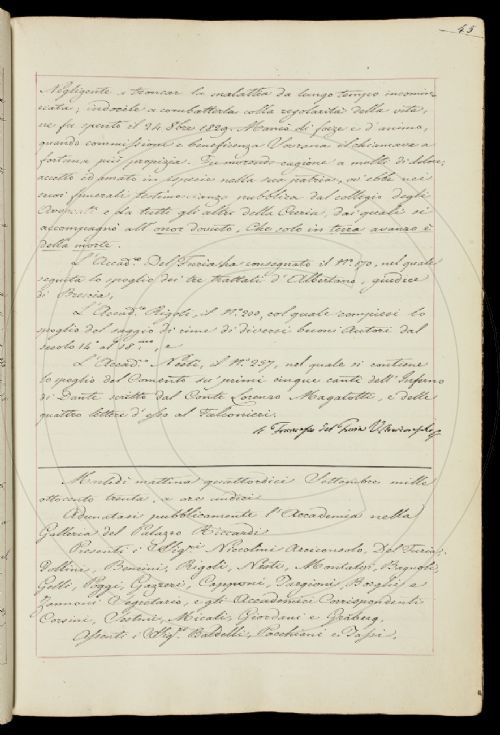 45
Negligente a troncar la malattia da lungo tempo incomin-
ciata; indocile a combatterla colla regolarità della vita,
ne fu spento il 24 8bre 1829. Mancò di forze e d'animo,
quando commissioni e beneficenza Sovrana il chiamava a
fortuna più propizia. Fu morendo cagione a molti di dolore;
accetto ed amato in specie nella sua patria, ov' ebbe nei
suoi funerali testimonianza pubblica dal collegio degli
Avvocati e da tutti gli altri della Curia, dai quali si
accompagnò all' onor dovuto, Che solo in terra avanza è
della morte.
L'Accad.co Del Furia ha consegnato il N.o 170, nel quale
seguita lo spoglio dei tre trattati d'Albertano, giudice
di Brescia,
L'Accad.co Rigoli, il N.o 200, col quale compiessi lo
spoglio del saggio di rime di diversi buoni Autori dal
secolo 14 al 18.mo, e
L'Accad.co Nesti, il N.o 237, nel quale si contiene
lo spoglio del Comento su' primi cinque canti dell' Inferno
di Dante scritto dal Conte Lorenzo Magalotti, e delle
quattro lettere d'esso al Falconieri.
Francesco del Furia
Martedì mattina quattordici Settembre mille
ottocento trenta, a ore undici
Adunatasi pubblicamente l'Accademia nella
Galleria del Palazzo Riccardi
Presenti i Sig.ri Niccolini Arciconsolo, Del Furia,
Pollini, Bencini, Rigoli, Nesti, Montalvi, Bagnoli,
Gelli, Poggi, Gazzeri, Capponi, Targioni, Borghi e
Zannoni Segretario, e gli Accademici Corrispondenti
Corsini, Sestini, Micali, Giordani e Gråberg,
Assenti i Sig.ri Baldelli, Pacchiani e Tassi,